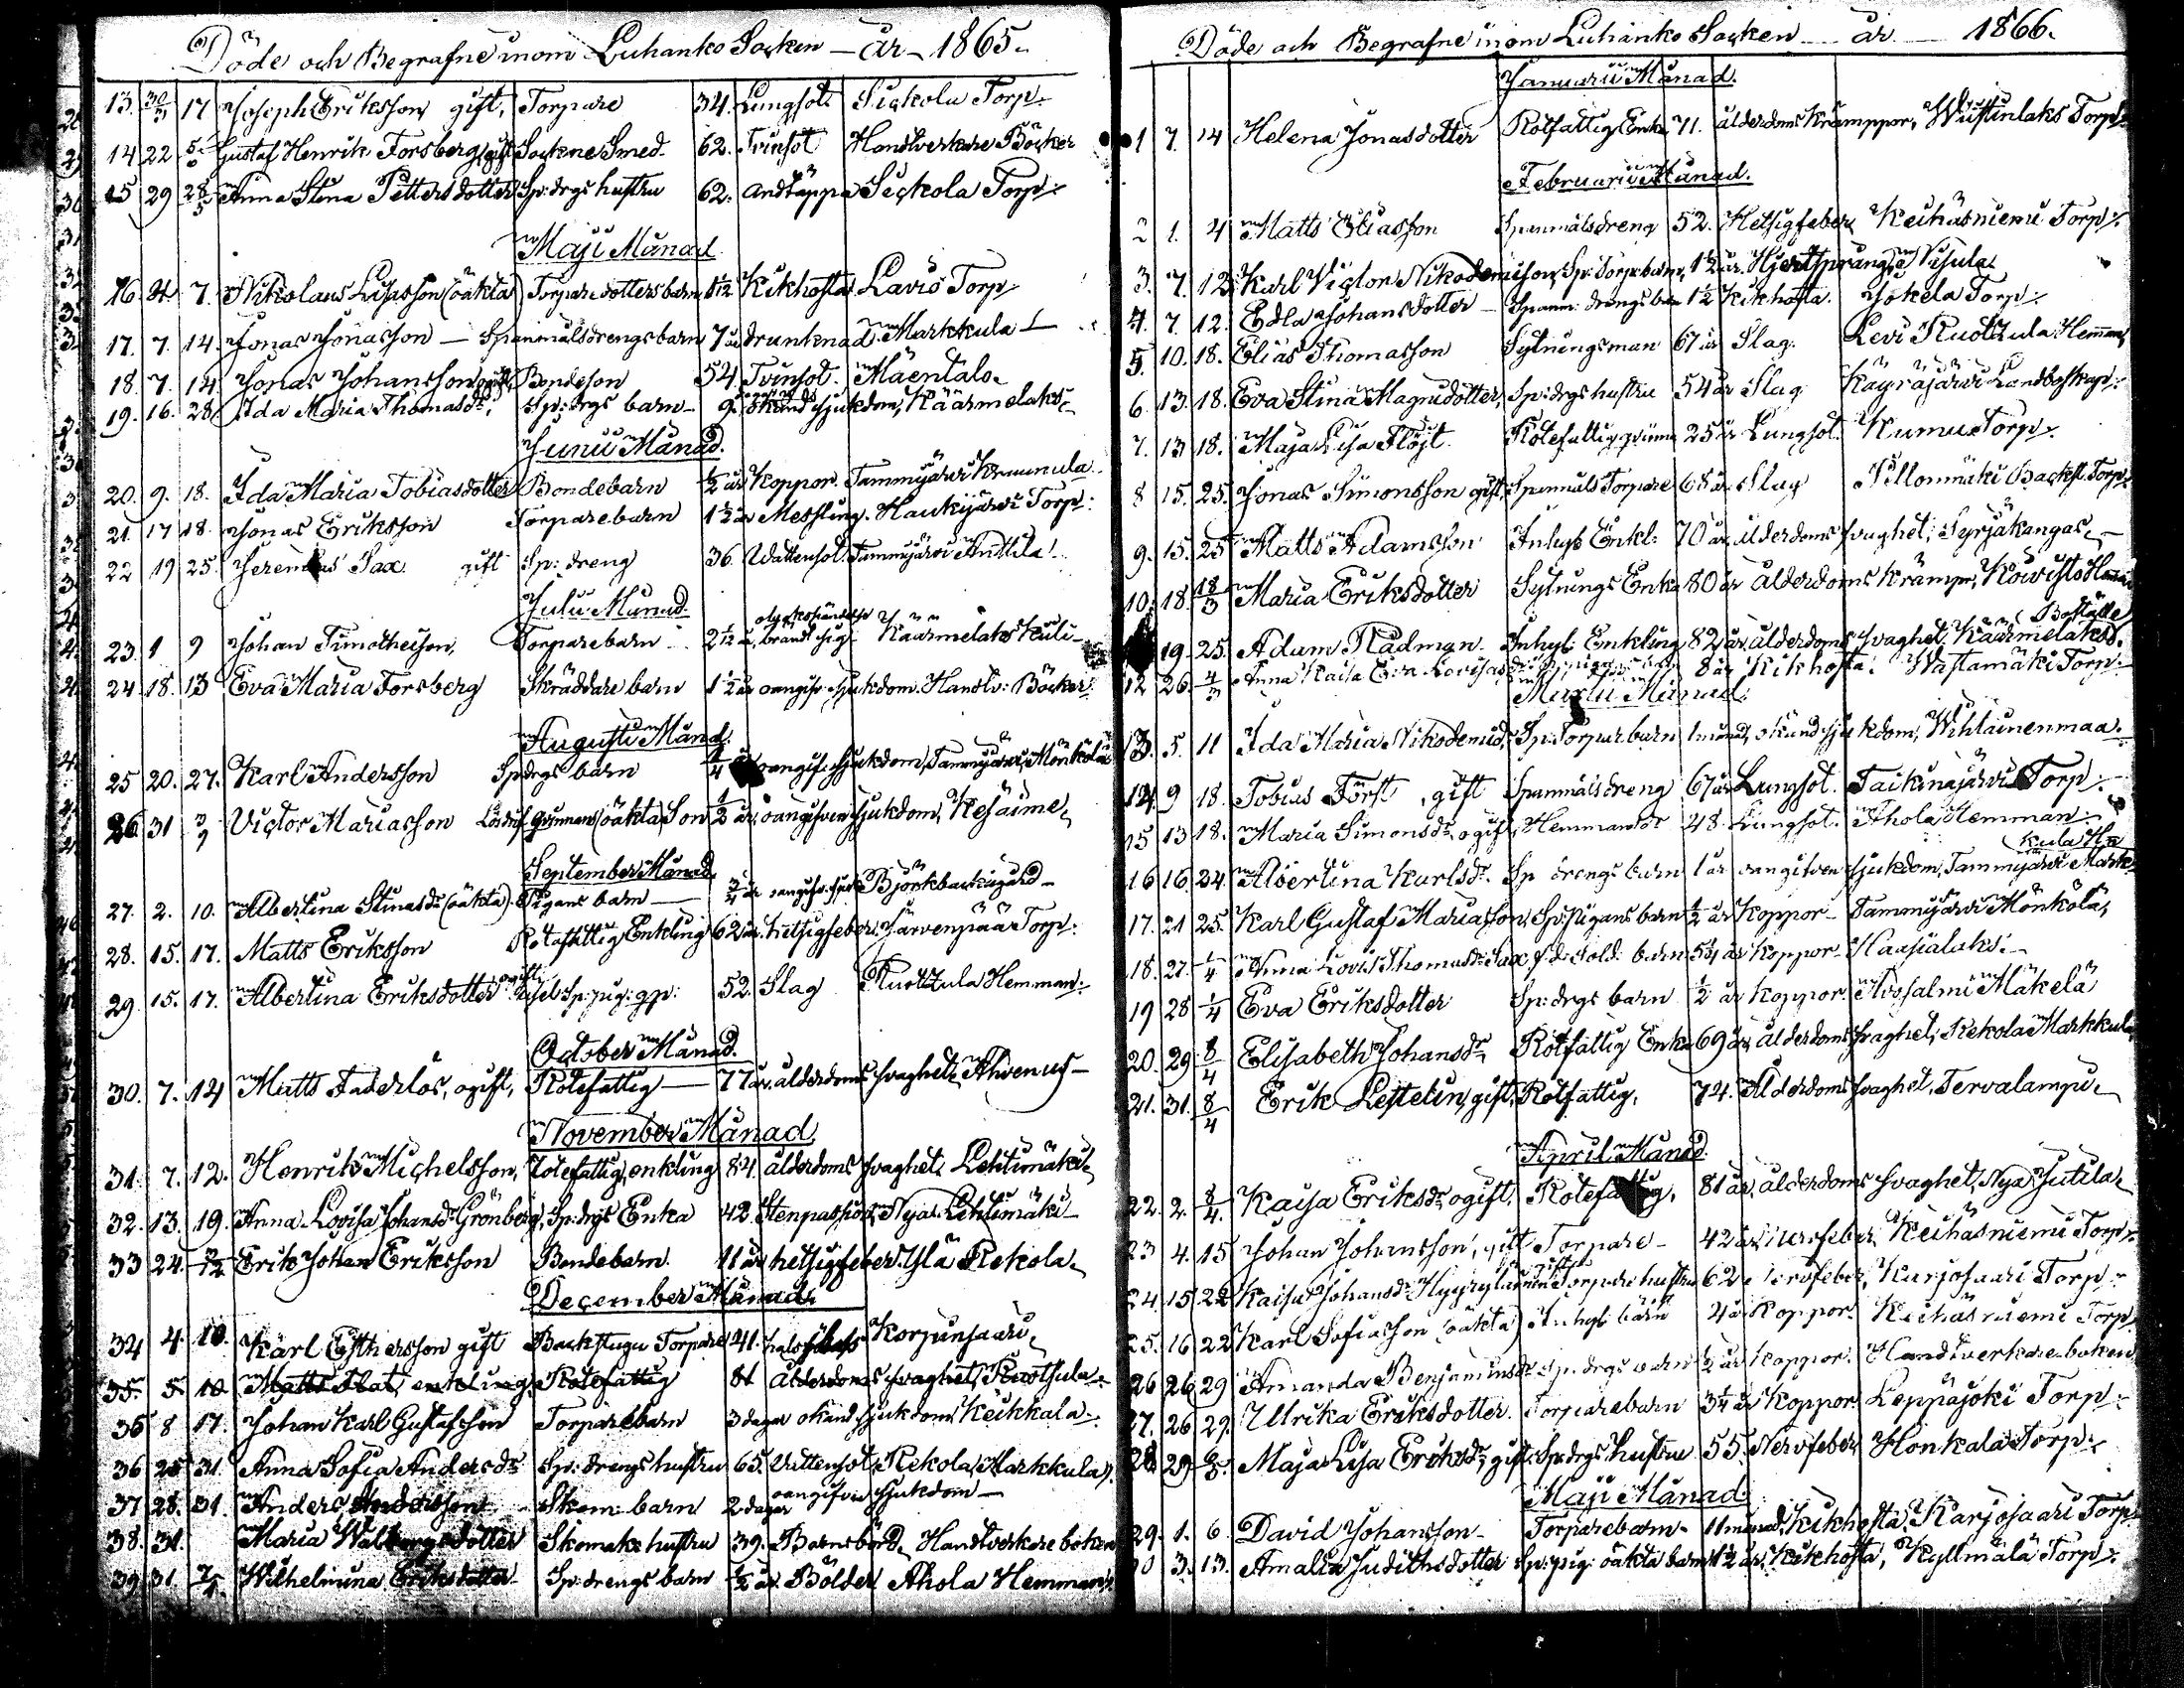 Döde och Begrafne inom Luhanko Socken – år – 1865.
13. 30/3 17 Joseph Eriksson gift, Torpare 34. Lungsot Sickola Torp.
14 22 Gustaf Henrik Forsberg, gift Sockne Smed 62. Tvinsot Handtverkare Böcker
15 29 28/5 Anna Stina Pettersdotter Sp: drgs hustru 62. andtäppa Sickola Torp.
Maji Månad
16 7 Nikolaus Lisasson (oäkta) Torparedottersbarn Kikhosta Lavis Torp
17. 7. 14. Jonas Jonasson – Spanmålsdrengsbarn 7 år drunknad. Markkula
18. 7. 14 Jonas Johansson ogift, Bondeson 54. Tvinsot. Mäentalo
19. 16. 28 Ida Maria Thomasdr, Sp: drgs barn 9. okänd sjukdom, Käärmelaks
Junii Månad.
20. 9. 18. Ida Maria Tobiasdotter Bondebarn 1/2 år Koppor. Tammijärvi Krannula
21. 17 18. Jonas Eriksson Torparebarn 1 1/2 år Messling. Haukijärvi Torp.
22 19 25 Jeremias Sax gift Sp: dreng 36. Wattensot. Tammijärvi Anttila
Julii Månad.
23. 1 9 Johan Timotheison, Torparebarn 2 1/12 år, olyckshändelse brändt sig Käärmelaks
24 18. 13 Eva Maria Forsberg Skräddare barn 1 1/2 år oangifv. sjukdom. Handtv: Böcker
Augusti Månd.
25 20. 27. Karl Andersson Sp drgs barn oangif. sjukdom, Tammijärvi, Mönkölä
26 31 3/9 Victor Mariasson (oäkta) Son 1/2 år, oangifven sjukdom, Kesäime
September Månad
27. 2. 10. Albertina Stinasdr (oäkta) Pigans barn – oangifv. sjuk Björkbackagård
28. 15. 17. Matts Eriksson Rotefattig Enkling 62 år. hetsigfeber. Järvenpää Torp.
29. 15. 17. Albertina Eriksdotter ogift 52. Slag Ruottula Hemman.
October Månad.
30. 7. 14 Matts Faderlös, ogift, Rotefattig – 77 år. ålderdoms svaghet, Ahvenus
November Månad
31. 7. 12. Henrik Michelsson, Rotefattig enkling 84. ålderdoms svaghet Lehtimäki
32. 13. 19. Anna Lovisa Johansdr Grönberg, Sp. drgs Enka 42. Stenpassion, Nya Lehtimäki
33 24. Erik Johan Eriksson Bondebarn. 11 år hetsigfeber. Ylä Rekola
December Månad
34 4 10. Karl Esthersson gift Backstugu Torpare 41. Korpinsaari
35. 5. 10 Matts Flat, enkling, Rotefattig 81 ålderdoms svaghet, Ruottula
35 8 17. Johan Karl Gustafsson Torparebarn 3 dagar okänd sjukdom Keikkala
36 25 31 Anna Sofia Andersdr Sp: drengs hustru 65. Vattensot, Rekola Markkula
37 28. 31. Anders Andersson Skom: barn 2 dagar oangifven sjukdom
38. 31. Maria Walborgsdotter Skomake hustru 39. Barnsbörd. Handtverkare böken
39 31 7/1. Wilhelmina Eriksdotter Sp: drengs barn 1/2 år. Bölder Ahola Hemman
Döde och Begrafne inom Luhanko Socken – år – 1866.
Januarii Månad.
1 7. 14 Helena Jonasdotter Rotfattig Enka 71. ålderdoms krämppor, Wustinlaks Torp.
Februarii Månad.
2 1. 4 Matts Eliasson Spanmålsdreng 52. Hetsigfeber, Keihäsniemi Torp.
3. 7. 12 Karl Victor Nikodemison, Sp: Torp: barn, 1 1/2 år, Hjertsprång, Nisula
4. 7. 12. Edla Johansdotter – Spanm: drengs barn 1 1/2 Kikhosta. Jokela Torp.
5. 10. 18. Elias Thomasson Sytningsman 67 år Slag. Levi Ruottula Hemman
6. 13. 18. Eva Stina Magnidotter, Sp: drgs hustru 54 år Slag Käyräjärvi Landbostap.
7. 13 18. Maja Lisa Flöjt. Rotefattig qvinna 25 år Lungsot. Kumu Torp.
8 15. 25. Jonas Simonsson gift, Spanmåls Torpare 68 år Slag Pillonmäki Backst. Torp.
9. 15. 25 Matts Adamsson Inhys Enkl: 70 år, ålderdoms svaghet, Syrjäkangas
10. 18. 18/3 Maria Eriksdotter Sytnings Enka 80 år ålderdoms krämpr, Koivisto Hem
19. 25. Adam Rådman. Inhys: Enkling 82 år, ålderdoms svaghet, Käärmelaks Boställe
12 26 4/3 Anna Kaisa 8 år Kikhosta. Wastamäki Torp.
Martii Månad.
13. 5. 11 Ida Maria Nikodemid, Sp: Torpar barn 1 månad, okänd sjukdom, Wihlainenmaa.
14. 9 18. Tobias Först, gift Spanmålsdreng 67 år Lungsot. Taikinajärvi Torp.
15 13 18. Maria Simonsdr, ogift, Hemmansdr 48. Lungsot. Ahola Hemman
16 16. 24. Albertina Karlsdr. Sp drengs barn 1 år oangifven sjukdom, Tammijärvi Markkula Hn
17. 21 25. Karl Gustaf Mariasson, Sp: Pigans barn 1/2 år Koppor – Tammijärvi Mönkölä
18. 27. 1/4 Anna Lovis Thomasdr Sax, f.d. Sold: barn 5 1/4 år Koppor – Haasialaks
19 28 1/4 Eva Eriksdotter Sp: drgs barn 1/2 år koppor. Avosalmi Mäkelä
20. 29. 8/4 Elisabeth Johansdr, Rotfattig Enka 69 år, ålderdoms svaghet, Rekola Markkula
21. 31. 8/4 Erik Lestelin, gift, Rotfattig, 74. Ålderdoms svaghet, Tervalampi
April Månad
22. 2. 8/4. Kaisa Eriksdr, ogift, Rotefattig, 81 år, ålderdoms svaghet, Nya Jutila
23 4. 15 Johan Johansson, gift Torpare – 42 år, nervfeber, Keihäsniemi Torp.
24. 15 22 Kaisa Johansdr gift Torpare hustru 62. nervfeber, Karjosaari Torp.
25. 16 22 Karl Sofiasson (oäkta) Inhys barn 4 år Koppor. Keihäsniemi Torp
26 26 29 Amanda Benjaminsdr Sp. drgs barn 1/2 år Koppor. Handtverkare böken
27. 26 29. Ulrika Eriksdotter. Torparebarn 3 1/4 år Koppor Leppäjoki Torp.
28 29 6/5. Maja Lisa Eriksdr, gift, Sp: drgs hustru 55. Nervfeber Honkala Torp.
Maji Månad.
29. 1. 6 David Johansson – Torparebarn – 11 månad, kikhosta, Karjosaari Torp.
30 3. 13. Amalia Judithsdotter Sp: pig: oäkta barn 1 1/2 år, Kikhosta, Kyllmälä Torp.